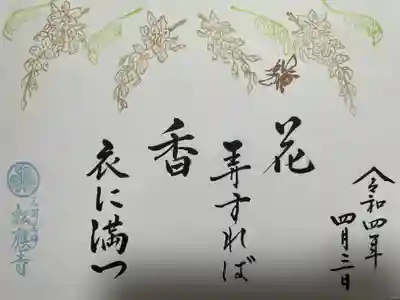 令和四年
四月三日
花
弄すれば
香
衣に満つ
松應寺